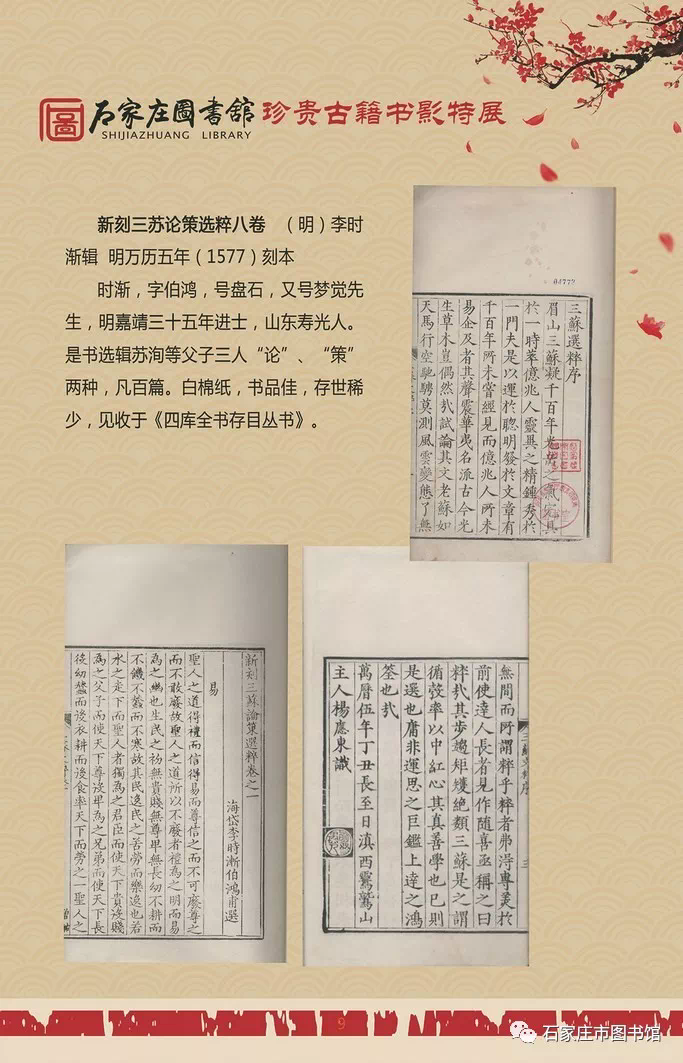 石家庄圖書館 珍贵古籍书影特展
SHIJIAZHUANG LIBRARY
新刻三苏论策选粹八卷 （明）李时
渐辑 明万历五年（1577）刻本
时渐，字伯鸿，号盘石，又号梦觉先
生，明嘉靖三十五年进士，山东寿光人。
是书选辑苏洵等父子三人“论”、“策”
两种，凡百篇。白棉纸，书品佳，存世稀
少，见收于《四库全书存目丛书》。
三蘇選粹序
眉山三蘇凝千百年光岳之氣完具
於一時萃億兆人靈異之精鍾秀於
一門夫是以運於聰明發於文章有
千百年所未嘗經見而億兆人所未
易企及者其聲震華夷名流古今光
生草木豈偶然㢤試論其文老蘇如
天馬行空馳騁莫測風雲變態了無
新刻三蘇論策選粹卷之一
海岱李時漸伯鴻甫選
易
聖人之道得禮而信得易而尊信之而不可廢尊之
而不敢廢故聖人之道所以不廢者禮為之明而易
為之幽也生民之初無貴賤無尊卑無長幼不耕而
不饑不蠶而不寒故其民逸民之苦勞而樂逸也若
水之走下而聖人者獨為之君臣而使天下貴役賤
為之父子而使天下尊役卑為之兄弟而使天下長
役幼蠶而後衣耕而後食率天下而勞之一聖人之
無間而所謂粹乎粹者弗淂專美於
前使達人長者見作隨喜亟稱之曰
粹㢤其步趨矩矱絶類三蘇是之謂
循彀率以中紅心其真善學也已則
是選也庸非運思之巨鑑上達之鴻
筌也㢤
萬曆伍年丁丑長至日滇西鷲山
主人楊應東識
9
石家庄市图书馆